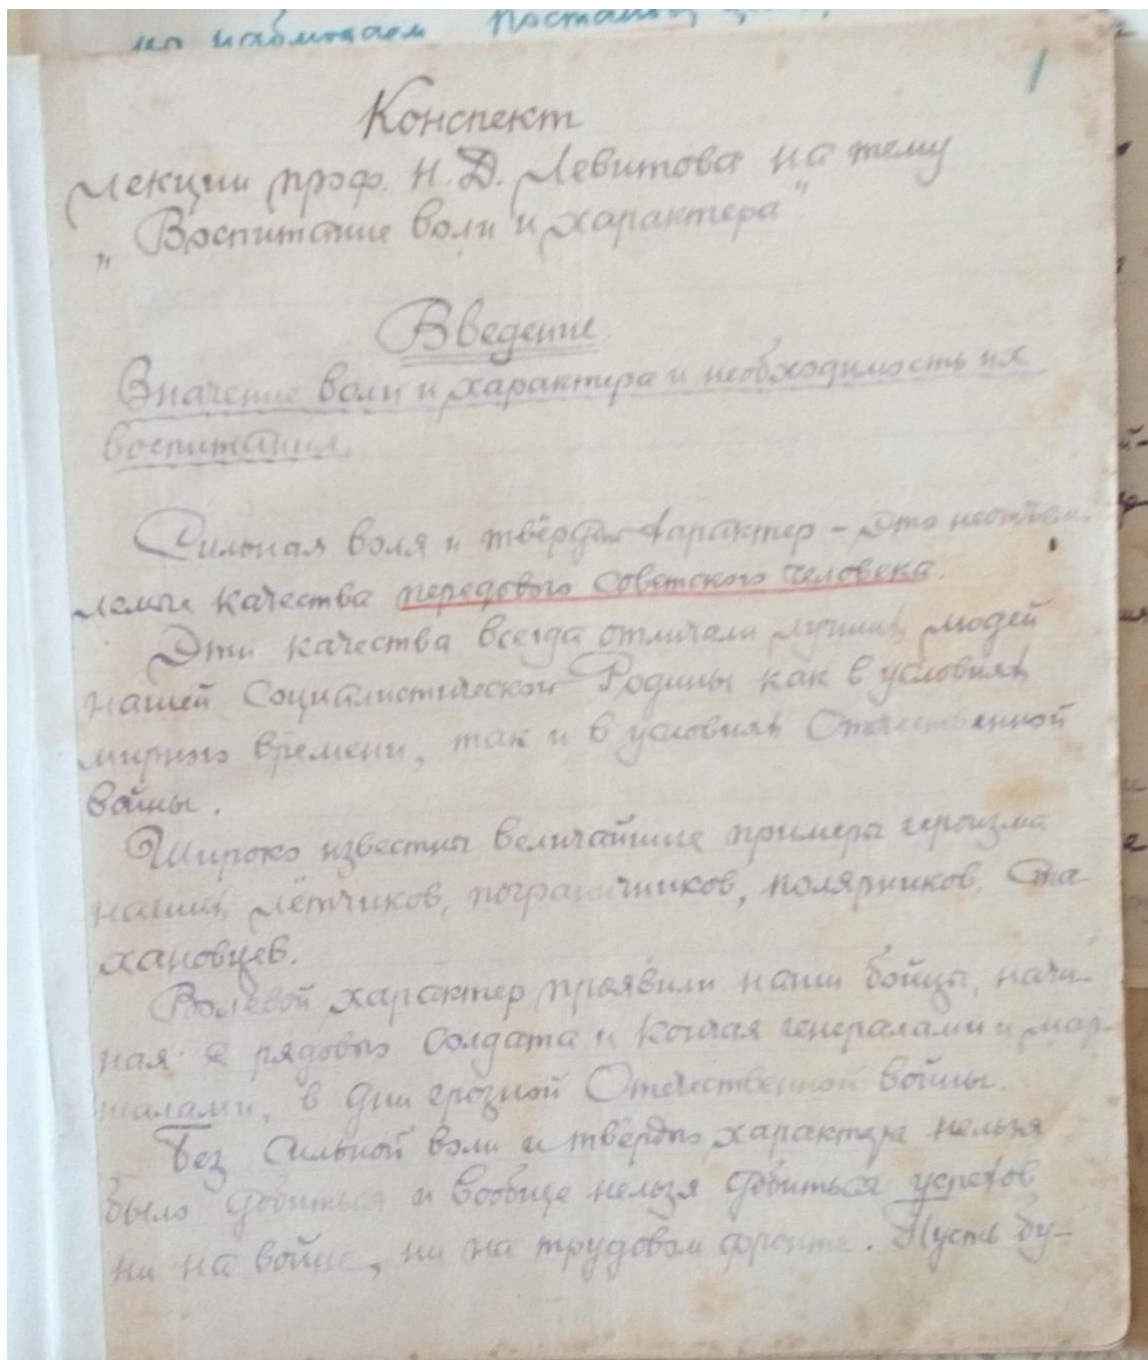 но наблюдаем постановку
1
Конспект
лекции проф. Н.Д. Левитова на тему
„Воспитание воли и характера"
Введение
Значение воли и характера и необходимость их
воспитания.
Сильная воля и твёрдый характер – это неотъем-
лемые качества передового советского человека.
Эти качества всегда отличали лучших людей
нашей Социалистической Родины как в условиях
мирного времени, так и в условиях Отечественной
войны.
Широко известны величайшие примеры героизма
наших лётчиков, пограничников, полярников, ста
хановцев.
Волевой характер проявили наши бойцы, начи-
ная с рядового солдата и кончая генералами и мар-
шалами, в дни грозной Отечественной войны.
Без сильной воли и твёрдого характера нельзя
было добиться и вообще нельзя добиться успехов
ни на войне, ни на трудовом фронте. Пусть бу-